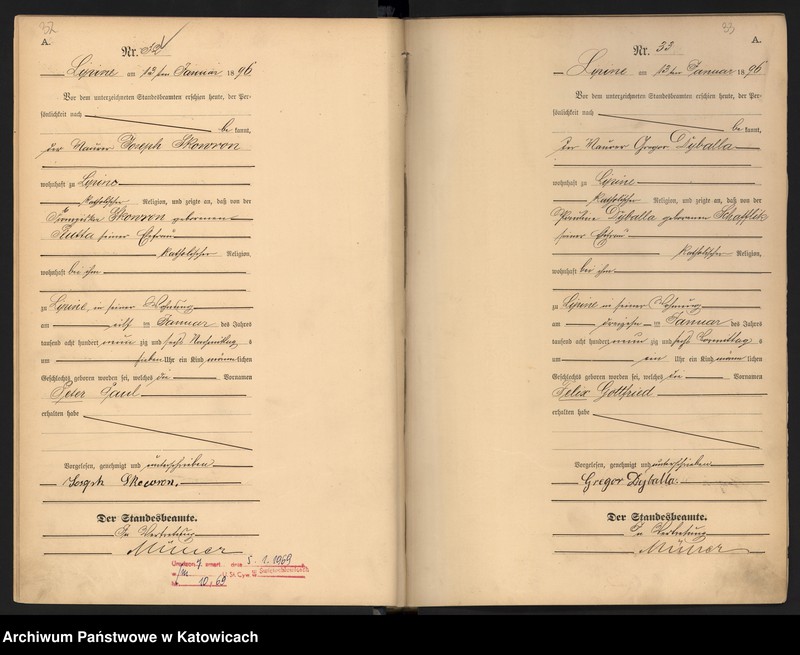 32
A.
Nr. 32
Lipine am 13ten Januar 1896
Vor dem unterzeichneten Standesbeamten erschien heute, der Per-
sönlichkeit nach
be kannt,
der Maurer Joseph Skowron
wohnhaft zu Lipine
katholischer Religion, und zeigte an, daß von der
Franziska Skowron geborenen
Rutta seiner Ehefrau
katholischer Religion,
wohnhaft bei ihm
zu Lipine, in seiner Wohnung
am elf ten Januar des Jahres
tausend acht hundert neun zig und sechs Nachmittag s
um sieben Uhr ein Kind männ lichen
Geschlechts geboren worden sei, welches die Vornamen
Peter Paul
erhalten habe
Vorgelesen, genehmigt und unterschrieben
Joseph Skowron.
Der Standesbeamte.
In Vertretung
5. 1. 1969
10/69
33
A.
Nr. 33
Lipine am 13ten Januar 1896
Vor dem unterzeichneten Standesbeamten erschien heute, der Per-
sönlichkeit nach
be kannt,
Der Maurer Gregor Dyballa
wohnhaft zu Lipine
katholischer Religion, und zeigte an, daß von der
Pauline Dyballa geborenen
seiner Ehefrau
katholischer Religion,
wohnhaft bei ihm
zu Lipine in seiner Wohnung
am dreizehn ten Januar des Jahres
tausend acht hundert neun zig und sechs Vormittag s
um ein Uhr ein Kind männ lichen
Geschlechts geboren worden sei, welches die Vornamen
Felix Gottfried
erhalten habe
Vorgelesen, genehmigt und unterschrieben
Gregor Dyballa.
Der Standesbeamte.
In Vertretung
Archiwum Państwowe w Katowicach